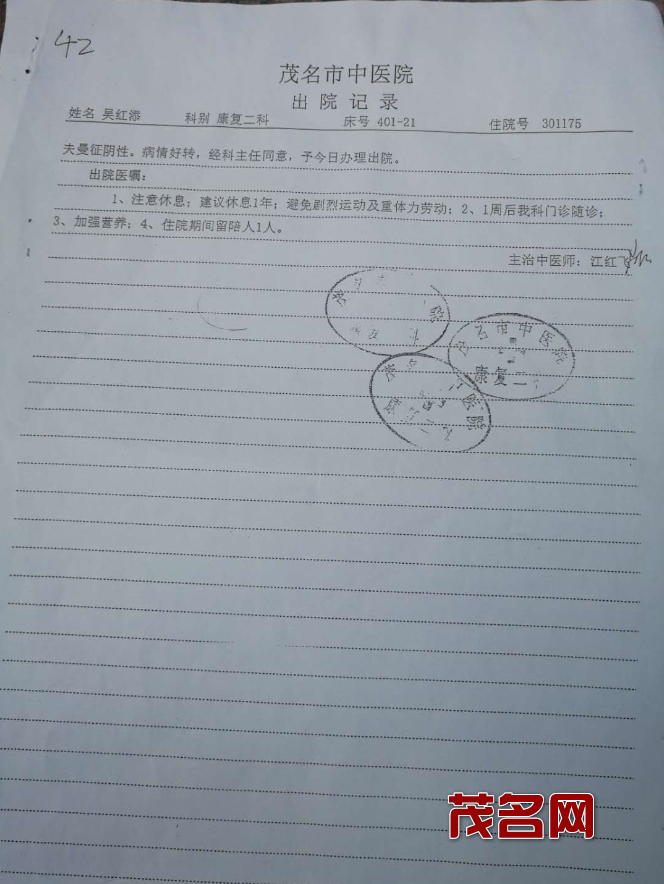 42
茂名市中医院
出院记录
姓名 吴红添 科别 康复二科 床号 401-21 住院号 301175
夫曼征阴性。病情好转，经科主任同意，予今日办理出院。
出院医嘱：
1、注意休息；建议休息1年；避免剧烈运动及重体力劳动；2、1周后我科门诊随诊；
3、加强营养；4、住院期间留陪人1人。
主治中医师：江红
茂名市中医院
康复二
医院
茂名网